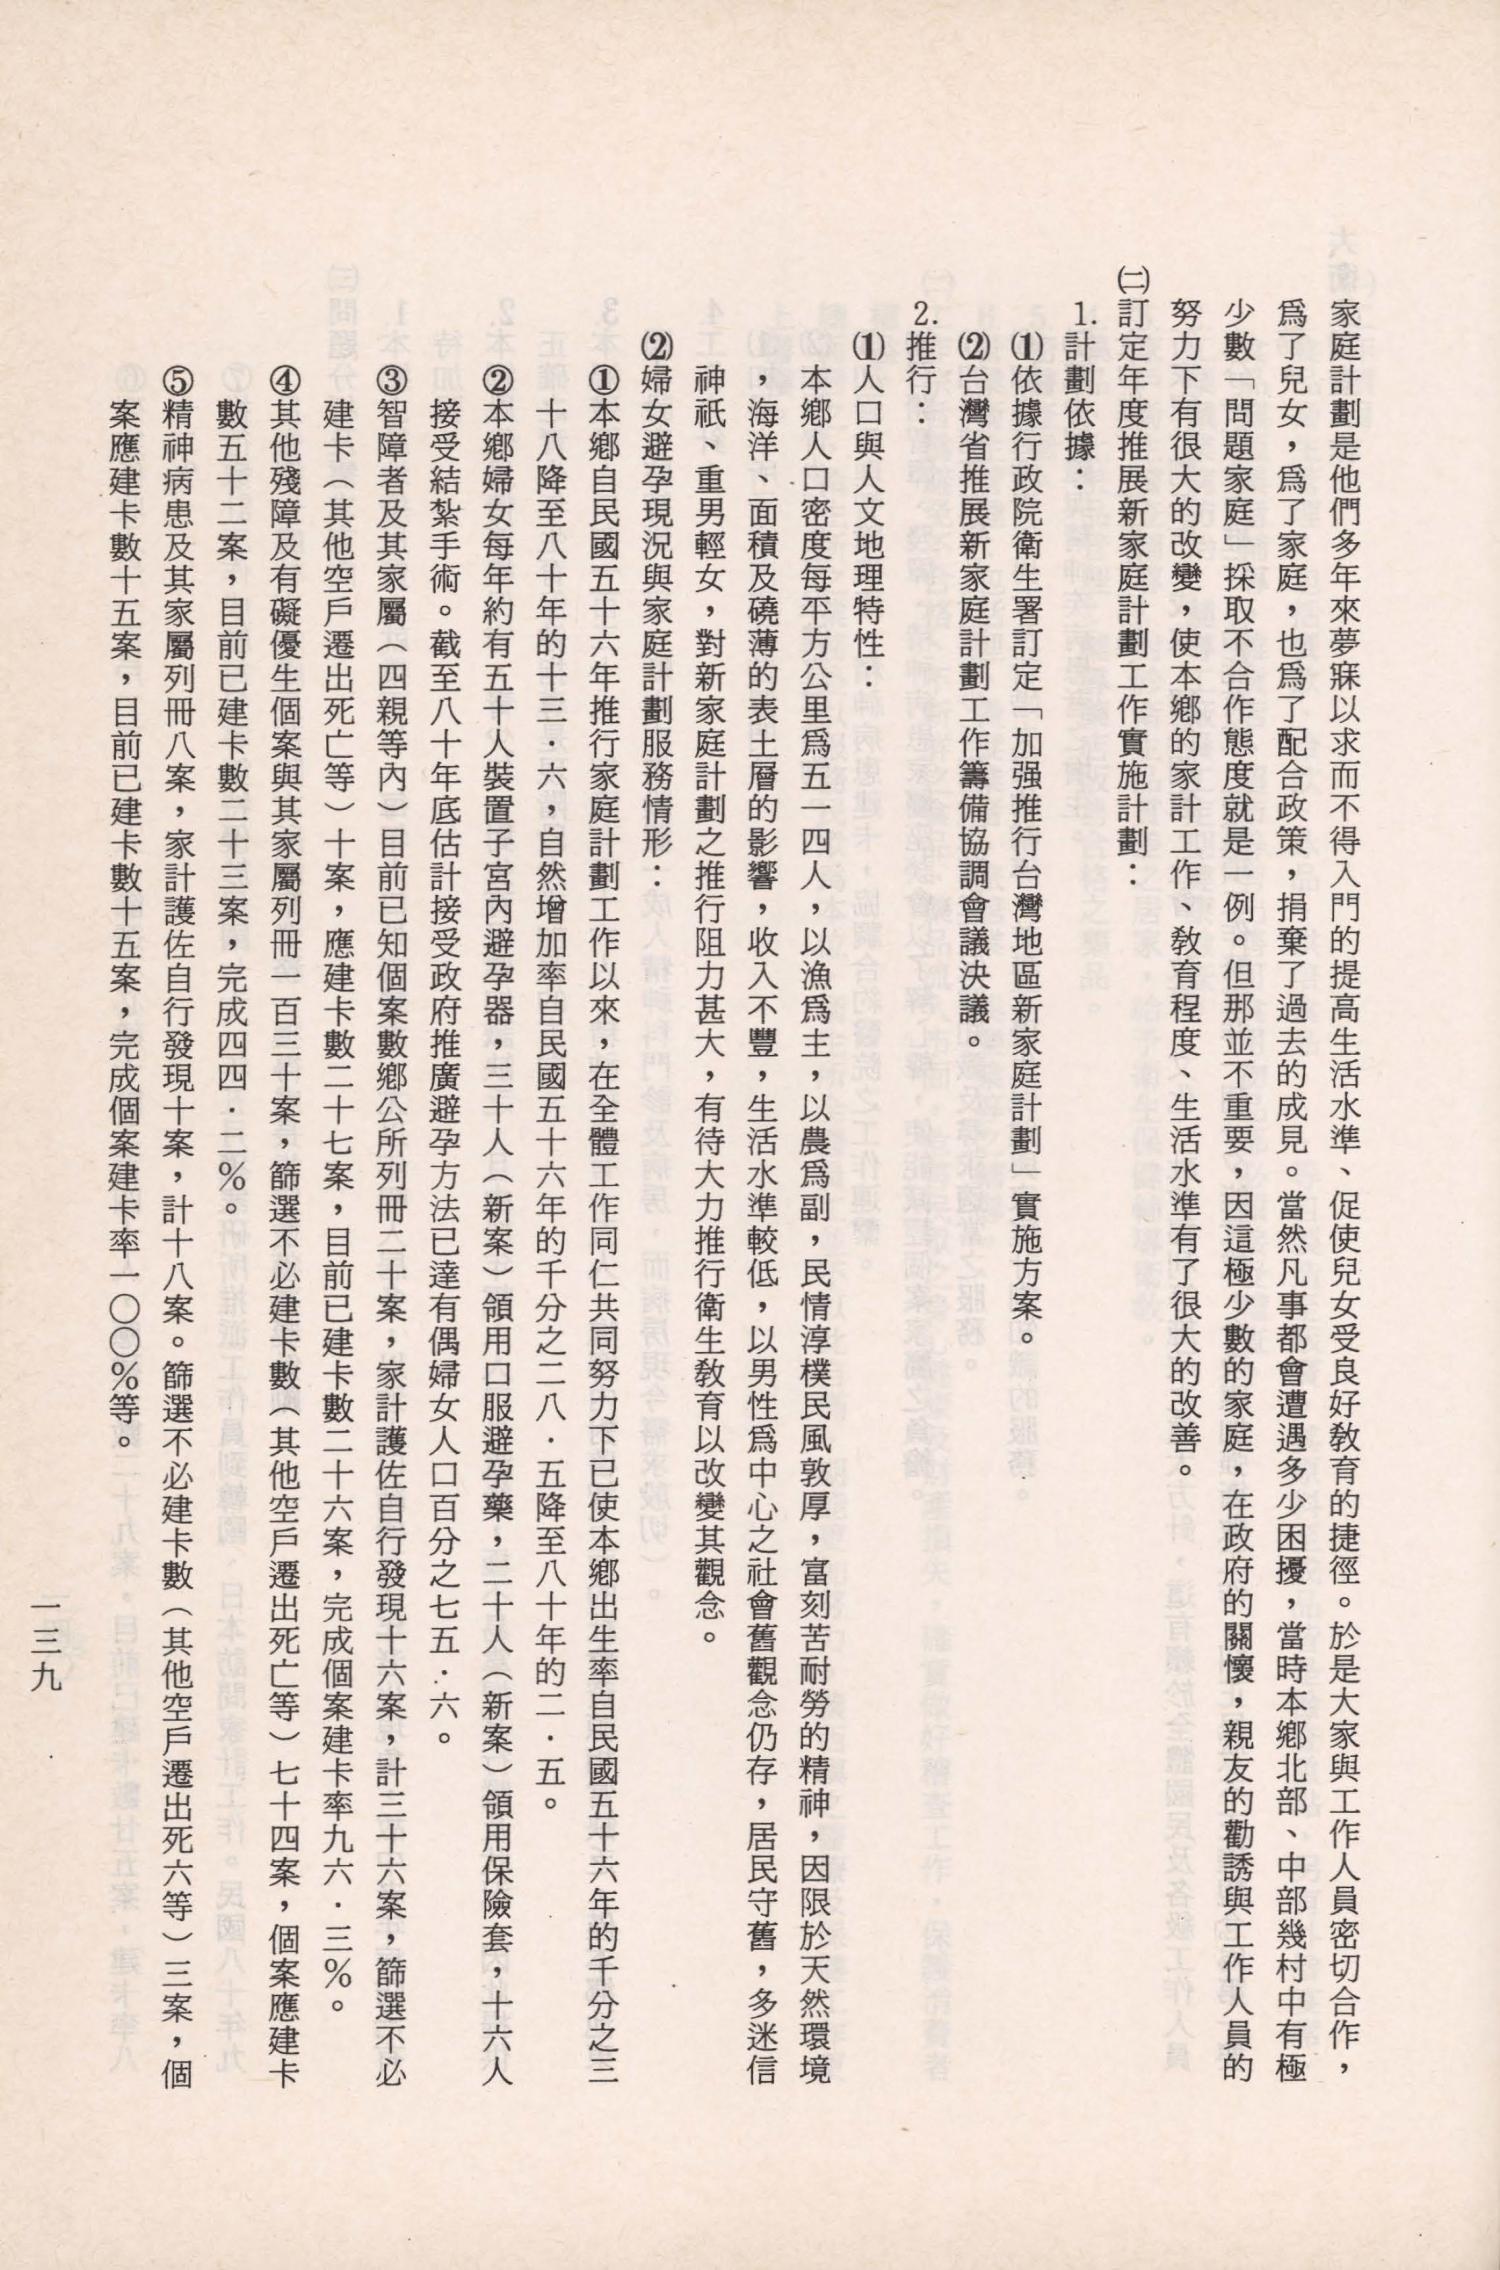 家庭計劃是他們多年來夢寐以求而不得入門的提高生活水準、促使兒女受良好敎育的捷徑。於是大家與工作人員密切合作，
爲了兒女，爲了家庭，也爲了配合政策，捐棄了過去的成見。當然凡事都會遭遇多少困擾，當時本鄉北部、中部幾村中有極
少數「問題家庭」採取不合作態度就是一例。但那並不重要，因這極少數的家庭，在政府的關懷，親友的勸誘與工作人員的
努力下有很大的改變，使本鄉的家計工作、敎育程度、生活水準有了很大的改善。
㈡訂定年度推展新家庭計劃工作實施計劃：
1.計劃依據：
⑴依據行政院衛生署訂定「加强推行台灣地區新家庭計劃」實施方案。
⑵台灣省推展新家庭計劃工作籌備協調會議決議。
2.推行：
⑴人口與人文地理特性：
本鄉人口密度每平方公里爲五一四人，以漁爲主，以農爲副，民情淳樸民風敦厚，富刻苦耐勞的精神，因限於天然環境
，海洋、面積及磽薄的表土層的影響，收入不豐，生活水準較低，以男性爲中心之社會舊觀念仍存，居民守舊，多迷信
神祇、重男輕女，對新家庭計劃之推行阻力甚大，有待大力推行衛生敎育以改變其觀念。
⑵婦女避孕現況與家庭計劃服務情形：
①本鄉自民國五十六年推行家庭計劃工作以來，在全體工作同仁共同努力下已使本鄉出生率自民國五十六年的千分之三
十八降至八十年的十三．六，自然增加率自民國五十六年的千分之二八．五降至八十年的二．五。
②本鄉婦女每年約有五十人裝置子宮內避孕器，三十人（新案）領用口服避孕藥，二十人（新案）領用保險套，十六人
接受結紮手術。截至八十年底估計接受政府推廣避孕方法已達有偶婦女人口百分之七五．六。
③智障者及其家屬（四親等內）目前已知個案數鄉公所列冊二十案，家計護佐自行發現十六案，計三十六案，篩選不必
建卡（其他空戶遷出死亡等）十案，應建卡數二十七案，目前已建卡數二十六案，完成個案建卡率九六．三％。
④其他殘障及有礙優生個案與其家屬列冊一百三十案，篩選不必建卡數（其他空戶遷出死亡等）七十四案，個案應建卡
數五十二案，目前已建卡數二十三案，完成四四．二％。
⑤精神病患及其家屬列冊八案，家計護佐自行發現十案，計十八案。篩選不必建卡數（其他空戶遷出死六等）三案，個
案應建卡數十五案，目前已建卡數十五案，完成個案建卡率一〇〇％等。
一三九